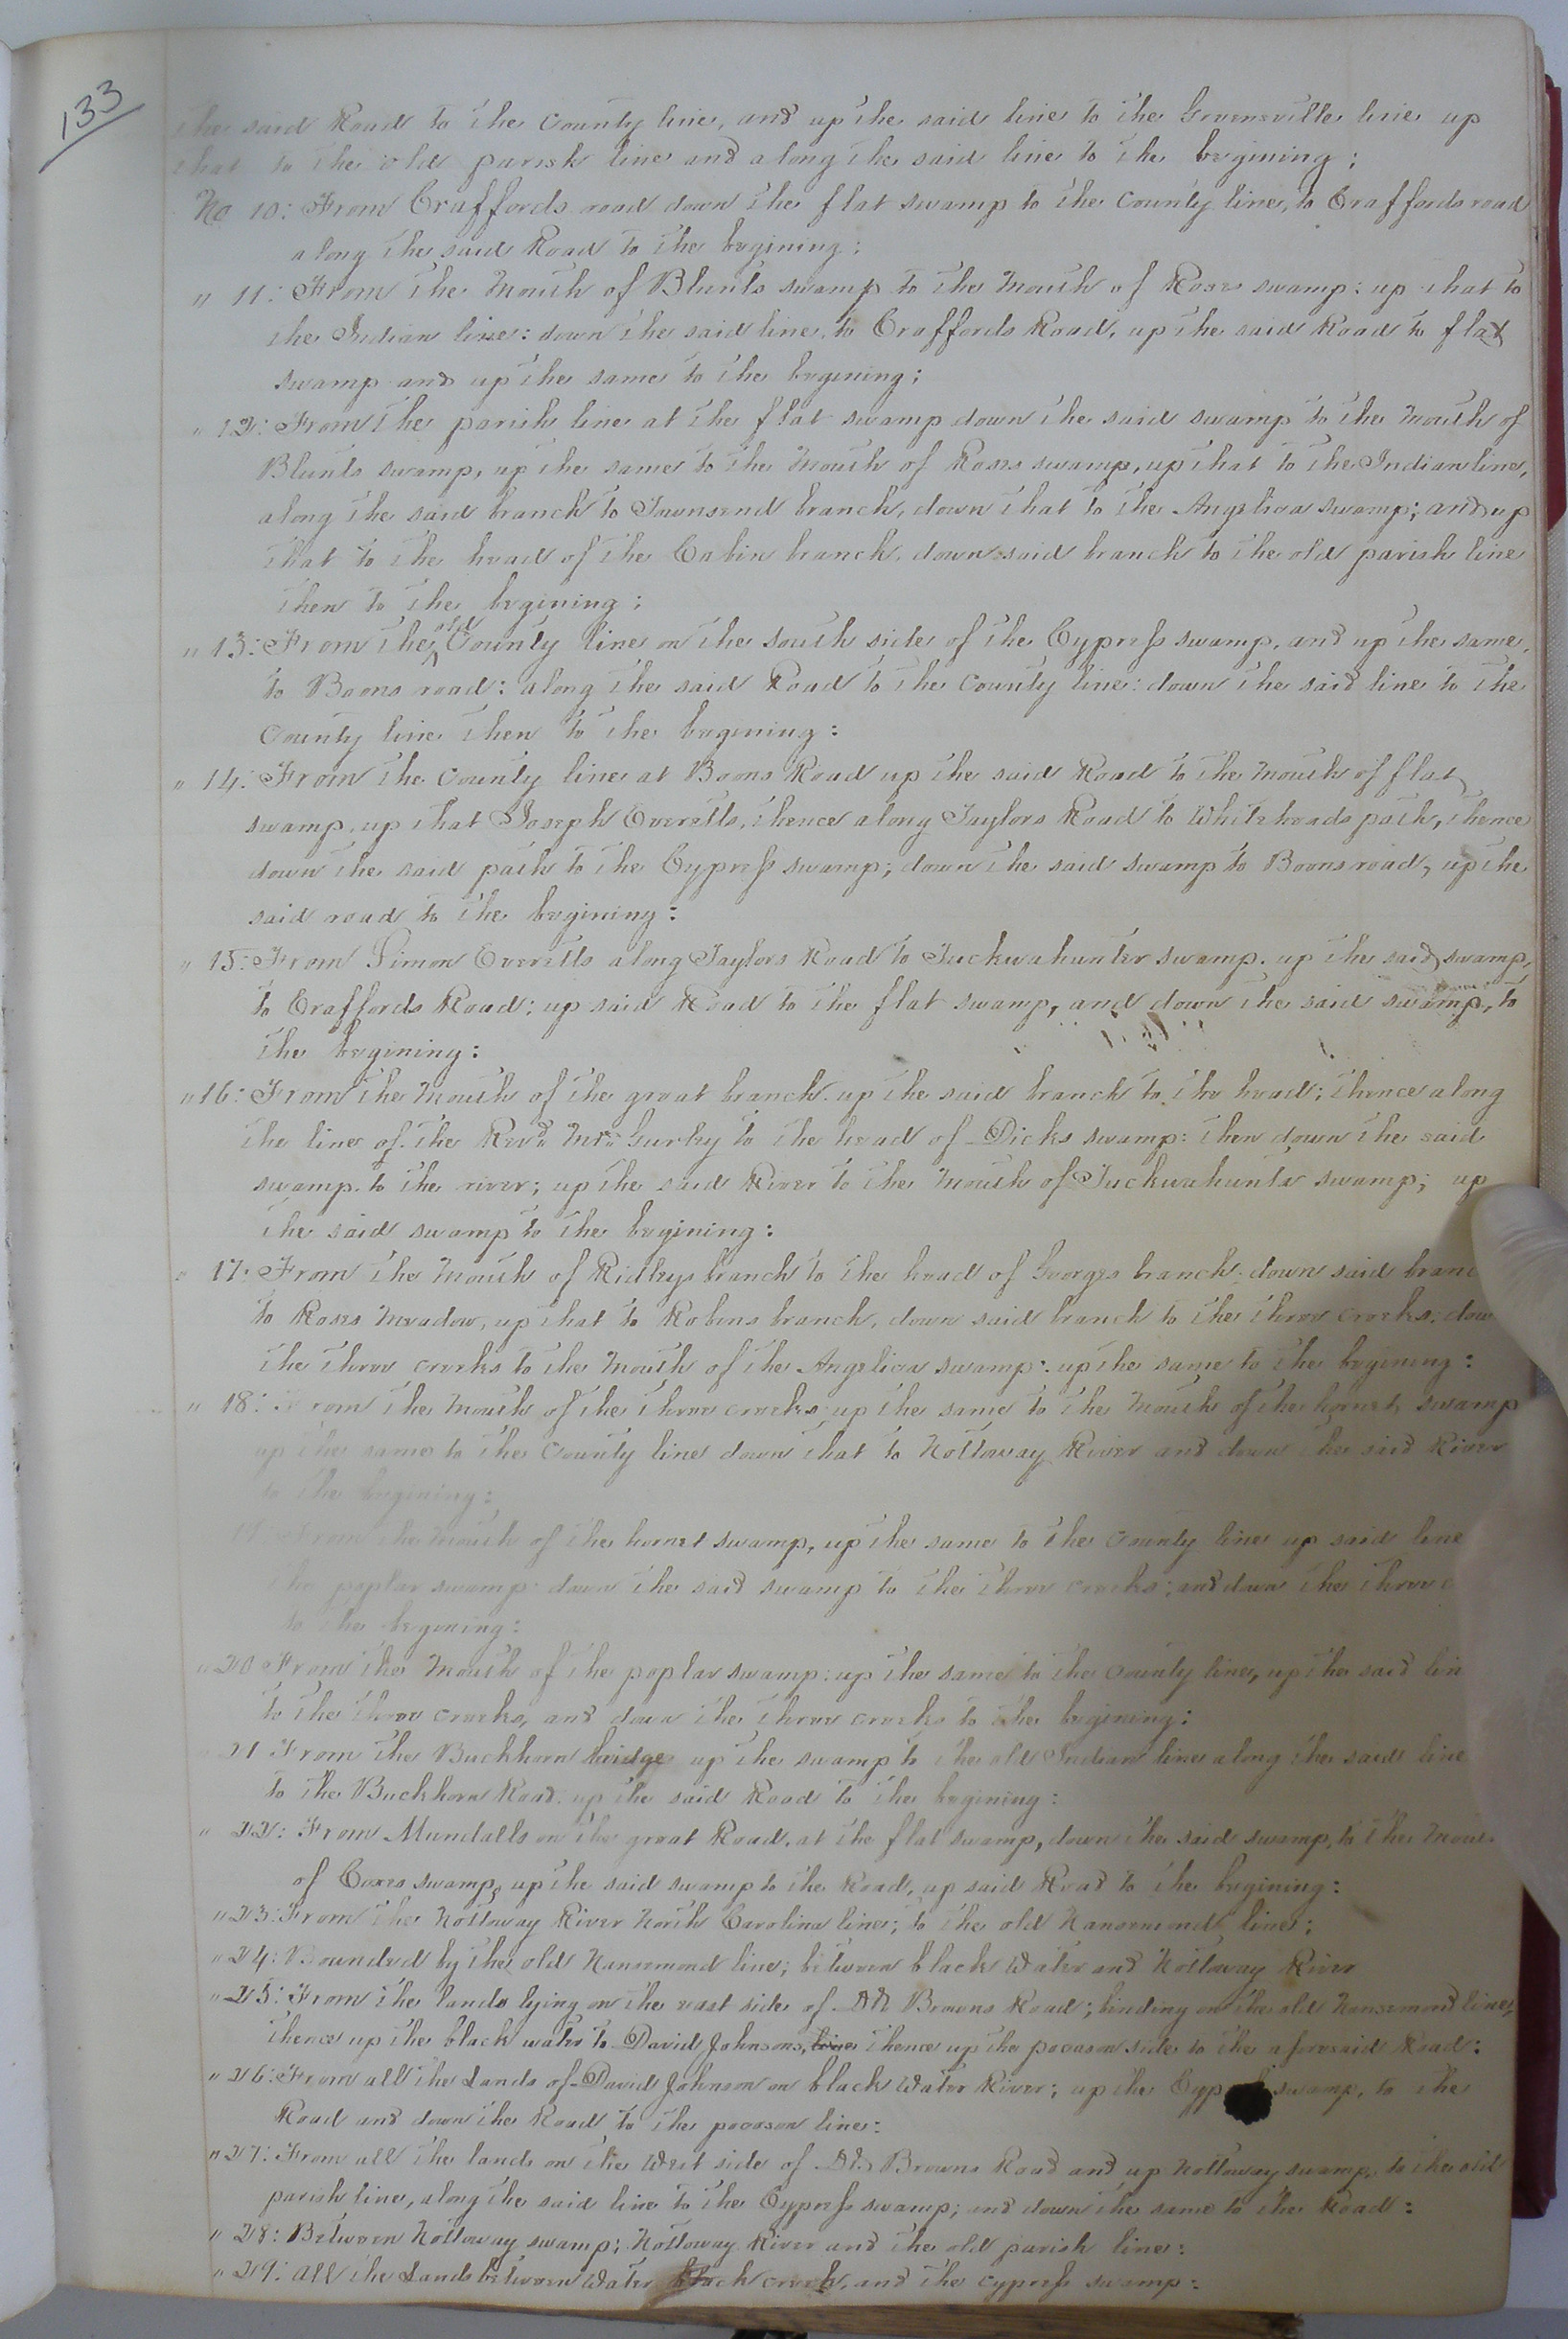 133
the said Road to the County line, and up the said line to the Greensville line up
that to the old parish line and along the said line to the begining;
No 10: From Craffords road down the flat swamp to the County line, to Craffords road
along the said Road to the begining:
" 11: From the Mouth of Blunts swamp to the Mouth of Roses swamp: up that to
the Indian line: down the said line, to Craffords Road, up the said Road to flat
swamp and up the same to the begining;
" 12: From the parish line at the flat swamp down the said swamp to the Mouth of
Blunts swamp, up the same to the Mouth of Roses swamp, up that to the Indian line,
along the said branch to Townsend branch, down that to the Angelica swamp; and up
that to the head of the Cabin branch, down said branch to the old parish line
then to the begining;
" 13: From the old County line on the south side of the Cypress swamp, and up the same,
to Boons road: along the said Road to the County line: down the said line to the
County line then to the begining:
" 14: From the County line at Boons Road up the said Road to the Mouth of flat
swamp, up that Joseph Everetts, thence along Taylors Road to Whiteheads path, thence
down the said path to the Cypress swamp; down the said swamp to Boons road, up the
said road to the begining:
" 15: From Simon Everetts along Taylors Road to Tuckwahunter swamp. up the said swamp,
to Craffords Road: up said Road to the flat swamp, and down the said swamp, to
the begining:
" 16: From the Mouth of the great branch. up the said branch to the head; thence along
the line of the Revd. Mr. Gurley to the head of Dicks swamp: then down the said
swamp to the river; up the said River to the Mouth of Tuckwahunter swamp; up
the said swamp to the begining:
" 17: From the Mouth of Ridleys branch to the head of Georges branch; down said branc
to Roses Meadow, up that to Robins branch, down said branch to the three creeks: dow
the three creeks to the Mouth of the Angelica swamp: up the same to the begining:
" 18: From the Mouth of the three creeks up the same to the Mouth of the hornet swamp
up the same to the County line down that to Nottoway River and down the said River
to the begining:
19: From the Mouth of the hornet swamp, up the same to the County line up said line
the poplar swamp: down the said swamp to the three creeks: and down the three c
to the begining:
" 20 From the Mouth of the poplar swamp: up the same to the County line, up the said lin
to the three creeks, and down the three creeks to the begining:
" 21 From the Buckhorn bridge up the swamp to the old Indian line along the said line
to the Buckhorn Road. up the said Road to the begining:
" 22: From Mundalls on the great Road, at the flat swamp, down the said swamp, to the Mout
of Coxes swamp, up the said swamp to the Road, up said Road to the begining:
" 23: From the Nottoway River North Carolina line; to the old Nansemond line;
" 24: Bounded by the old Nansemond line; between black Water and Nottoway River
" 25: From the lands lying on the east side of Browns Road; binding on the old Nansemond line,
thence up the black water to David Johnsons, line thence up the pocoson side to the aforesaid Road:
" 26: From all the Lands of David Johnson on black Water River; up the Cyp swamp, to the
Road and down the Road to the pocoson line:
" 27: From all the lands on the West side of Browns Road and up Nottoway swamp, to the old
parish line, along the said line to the Cypress swamp; and down the same to the Road:
" 28: Between Nottoway swamp; Nottoway River and the old parish line:
" 29: All the Lands between Water black creek, and the cypress swamp: